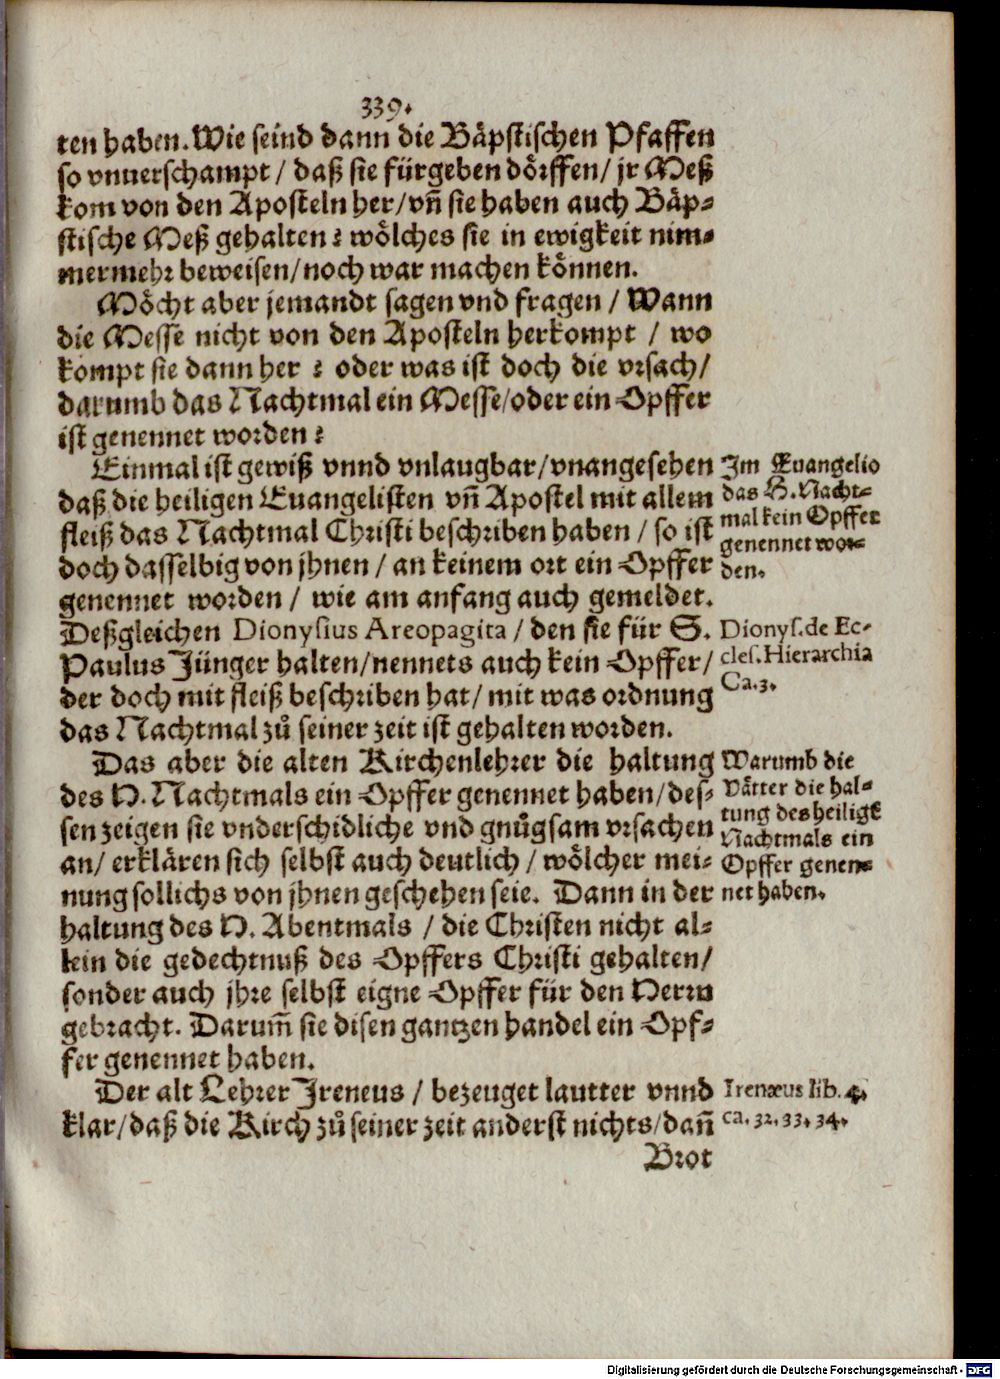 339.
ten haben. Wie seind dann die Bäpstischen Pfaffen
so vnuerschampt / daß sie fürgeben dörffen / jr Meß
kom von den Aposteln her / vñ sie haben auch Bäp-
stische Meß gehalten? wölches sie in ewigkeit nim-
mermehr beweisen / noch war machen können.
Möcht aber jemandt sagen vnd fragen / Wann
die Messe nicht von den Aposteln herkompt / wo
kompt sie dann her? oder was ist doch die vrsach /
darumb das Nachtmal ein Messe / oder ein Opffer
ist genennet worden?
Einmal ist gewiß vnnd vnlaugbar / vnangesehen
daß die heiligen Euangelisten vñ Apostel mit allem
fleiß das Nachtmal Christi beschriben haben / so ist
doch dasselbig von jhnen / an keinem ort ein Opffer
genennet worden / wie am anfang auch gemeldet.
Im Euangelio
das H. Nacht-
mal kein Opffer
genennet wor-
den.
Deßgleichen Dionysius Areopagita / den sie für S.
Paulus Jünger halten / nennets auch kein Opffer /
der doch mit fleiß beschriben hat / mit was ordnung
das Nachtmal zů seiner zeit ist gehalten worden.
Dionys. de Ec-
cles. Hierarchia
Ca. 3.
Das aber die alten Kirchenlehrer die haltung
des H. Nachtmals ein Opffer genennet haben / des-
sen zeigen sie vnderschidliche vnd gnůgsam vrsachen
an / erklären sich selbst auch deutlich / wölcher mei-
nung sollichs von jhnen geschehen seie. Dann in der
haltung des H. Abentmals / die Christen nicht al-
lein die gedechtnuß des Opffers Christi gehalten /
sonder auch jhre selbst eigne Opffer für den Herrn
gebracht. Darum̃ sie disen gantzen handel ein Opf-
fer genennet haben.
Warumb die
Vätter die hal-
tung des heiligẽ
Nachtmals ein
Opffer genen-
net haben.
Der alt Lehrer Jreneus / bezeuget lautter vnnd
klar / daß die Kirch zů seiner zeit anderst nichts / dañ
Irenæus lib. 4.
ca. 32. 33. 34.
Brot
Digitalisierung gefördert durch die Deutsche Forschungsgemeinschaft - DFG